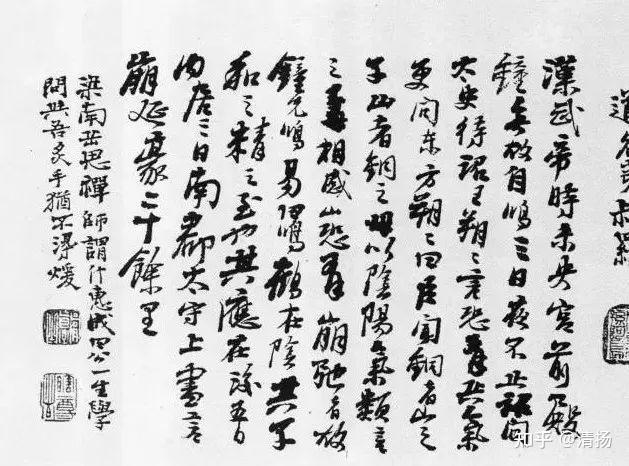 漢武帝時未央宮前殿
鐘無故自鳴三日夜不止詔問
太史待詔王朔々言恐有兵氣
更問東方朔々曰臣聞銅者山之
子山者銅之母以陰陽氣類言
之相感山恐有崩弛者故
鐘先鳴易曰鳴鶴在陰其子
和之精之至也其應在後五日
內居三日南郡太守上書言
崩延袤二十餘里
梁南岳思禪師謂什惠成曰公一生學
問與吾炙手猶不得煖
知乎 @清扬